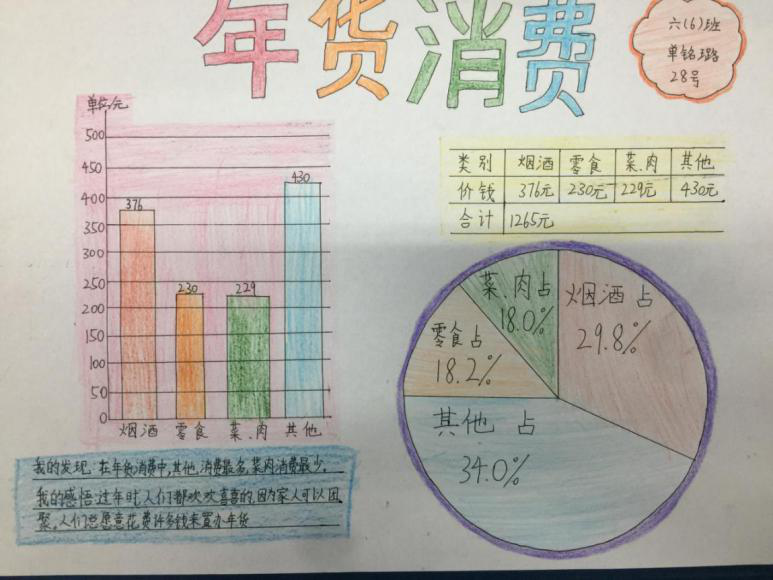 年货消费
六(6)班
单铭璐
28号
单位/元
500
450
400
350
300
250
200
150
100
50
0
376
230
229
430
烟酒 零食 菜、肉 其他
类别 烟酒 零食 菜、肉 其他
价钱 376元 230元 229元 430元
合计 1265元
菜、肉占
18.0%
烟酒占
29.8%
零食占
18.2%
其他 占
34.0%
我的发现:在年货消费中,其他,消费最多,菜肉消费最少。
我的感悟:过年时,人们都欢欢喜喜的,因为家人可以团
聚。人们总愿意花费许多钱来置办年货